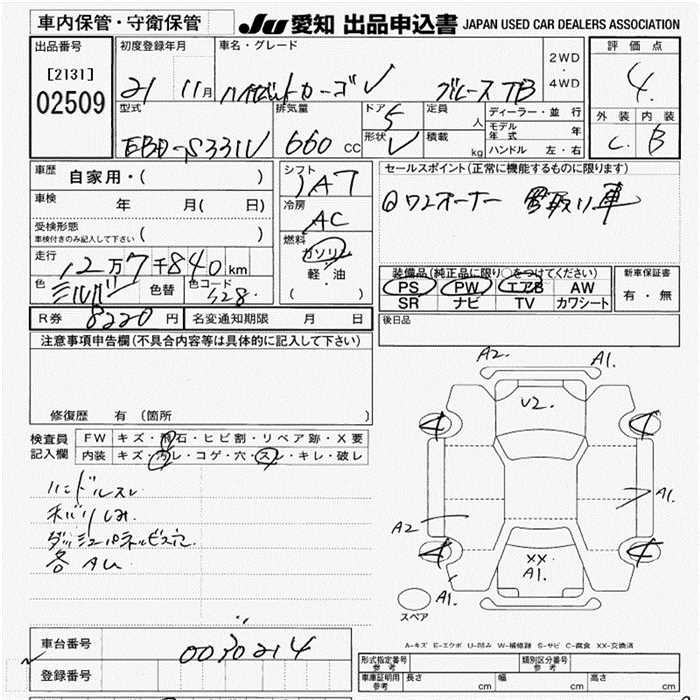 車内保管・守衛保管 JU 愛知 出品申込書 JAPAN USED CAR DEALERS ASSOCIATION
出品番号 初度登録年月 車名・グレード 2WD ・ 4WD 評価点
[2131] 21 11月 ハイゼットカーゴ クルーズ TB 4
02509 型式 排気量 ドア 5 定員 人 ディーラー・並行 外装 内装
モデル年式 年
EBD-S331V 660 CC 形状 V 積載 kg ハンドル 左・右 C B
車歴 自家用・( ) シフト IAT セールスポイント(正常に機能するものに限ります)
車検 年 月( 日) 冷房 AC ①ワンオーナー 買取り車
受検形態
車検付きのみ記入して下さい ( ) 燃料 ガソリン
走行 12万7千840km 軽・油 装備品(純正品に限り○をつけてください) 新車保証書
色 シルバー 色替 色コード S28 ( ) PS PW エアB AW 有・無
SR ナビ TV カワシート
R券 8220円 名変通知期限 月 日 後日品
注意事項申告欄(不具合内容等は具体的に記入して下さい)
A2. A1.
U2.
修復歴 有(箇所 )
検査員 FW キズ・飛石・ヒビ割・リペア跡・X要
記入欄 内装 キズ・汚レ・コゲ・穴・スレ・キレ・破レ
ハンドルスレ
A1.
天バリしみ
A2
ダッシュパネルビス穴
各AU
XX
A1.
A1.
スペア
車台番号 0030214
A-キズ E-エクボ U-凹み W-補修跡 S-サビ C-腐食 XX-交換済
登録番号
形式指定番号 参考 類別区分番号 参考
車庫証明用 参考 長さ cm 幅 cm 高さ cm